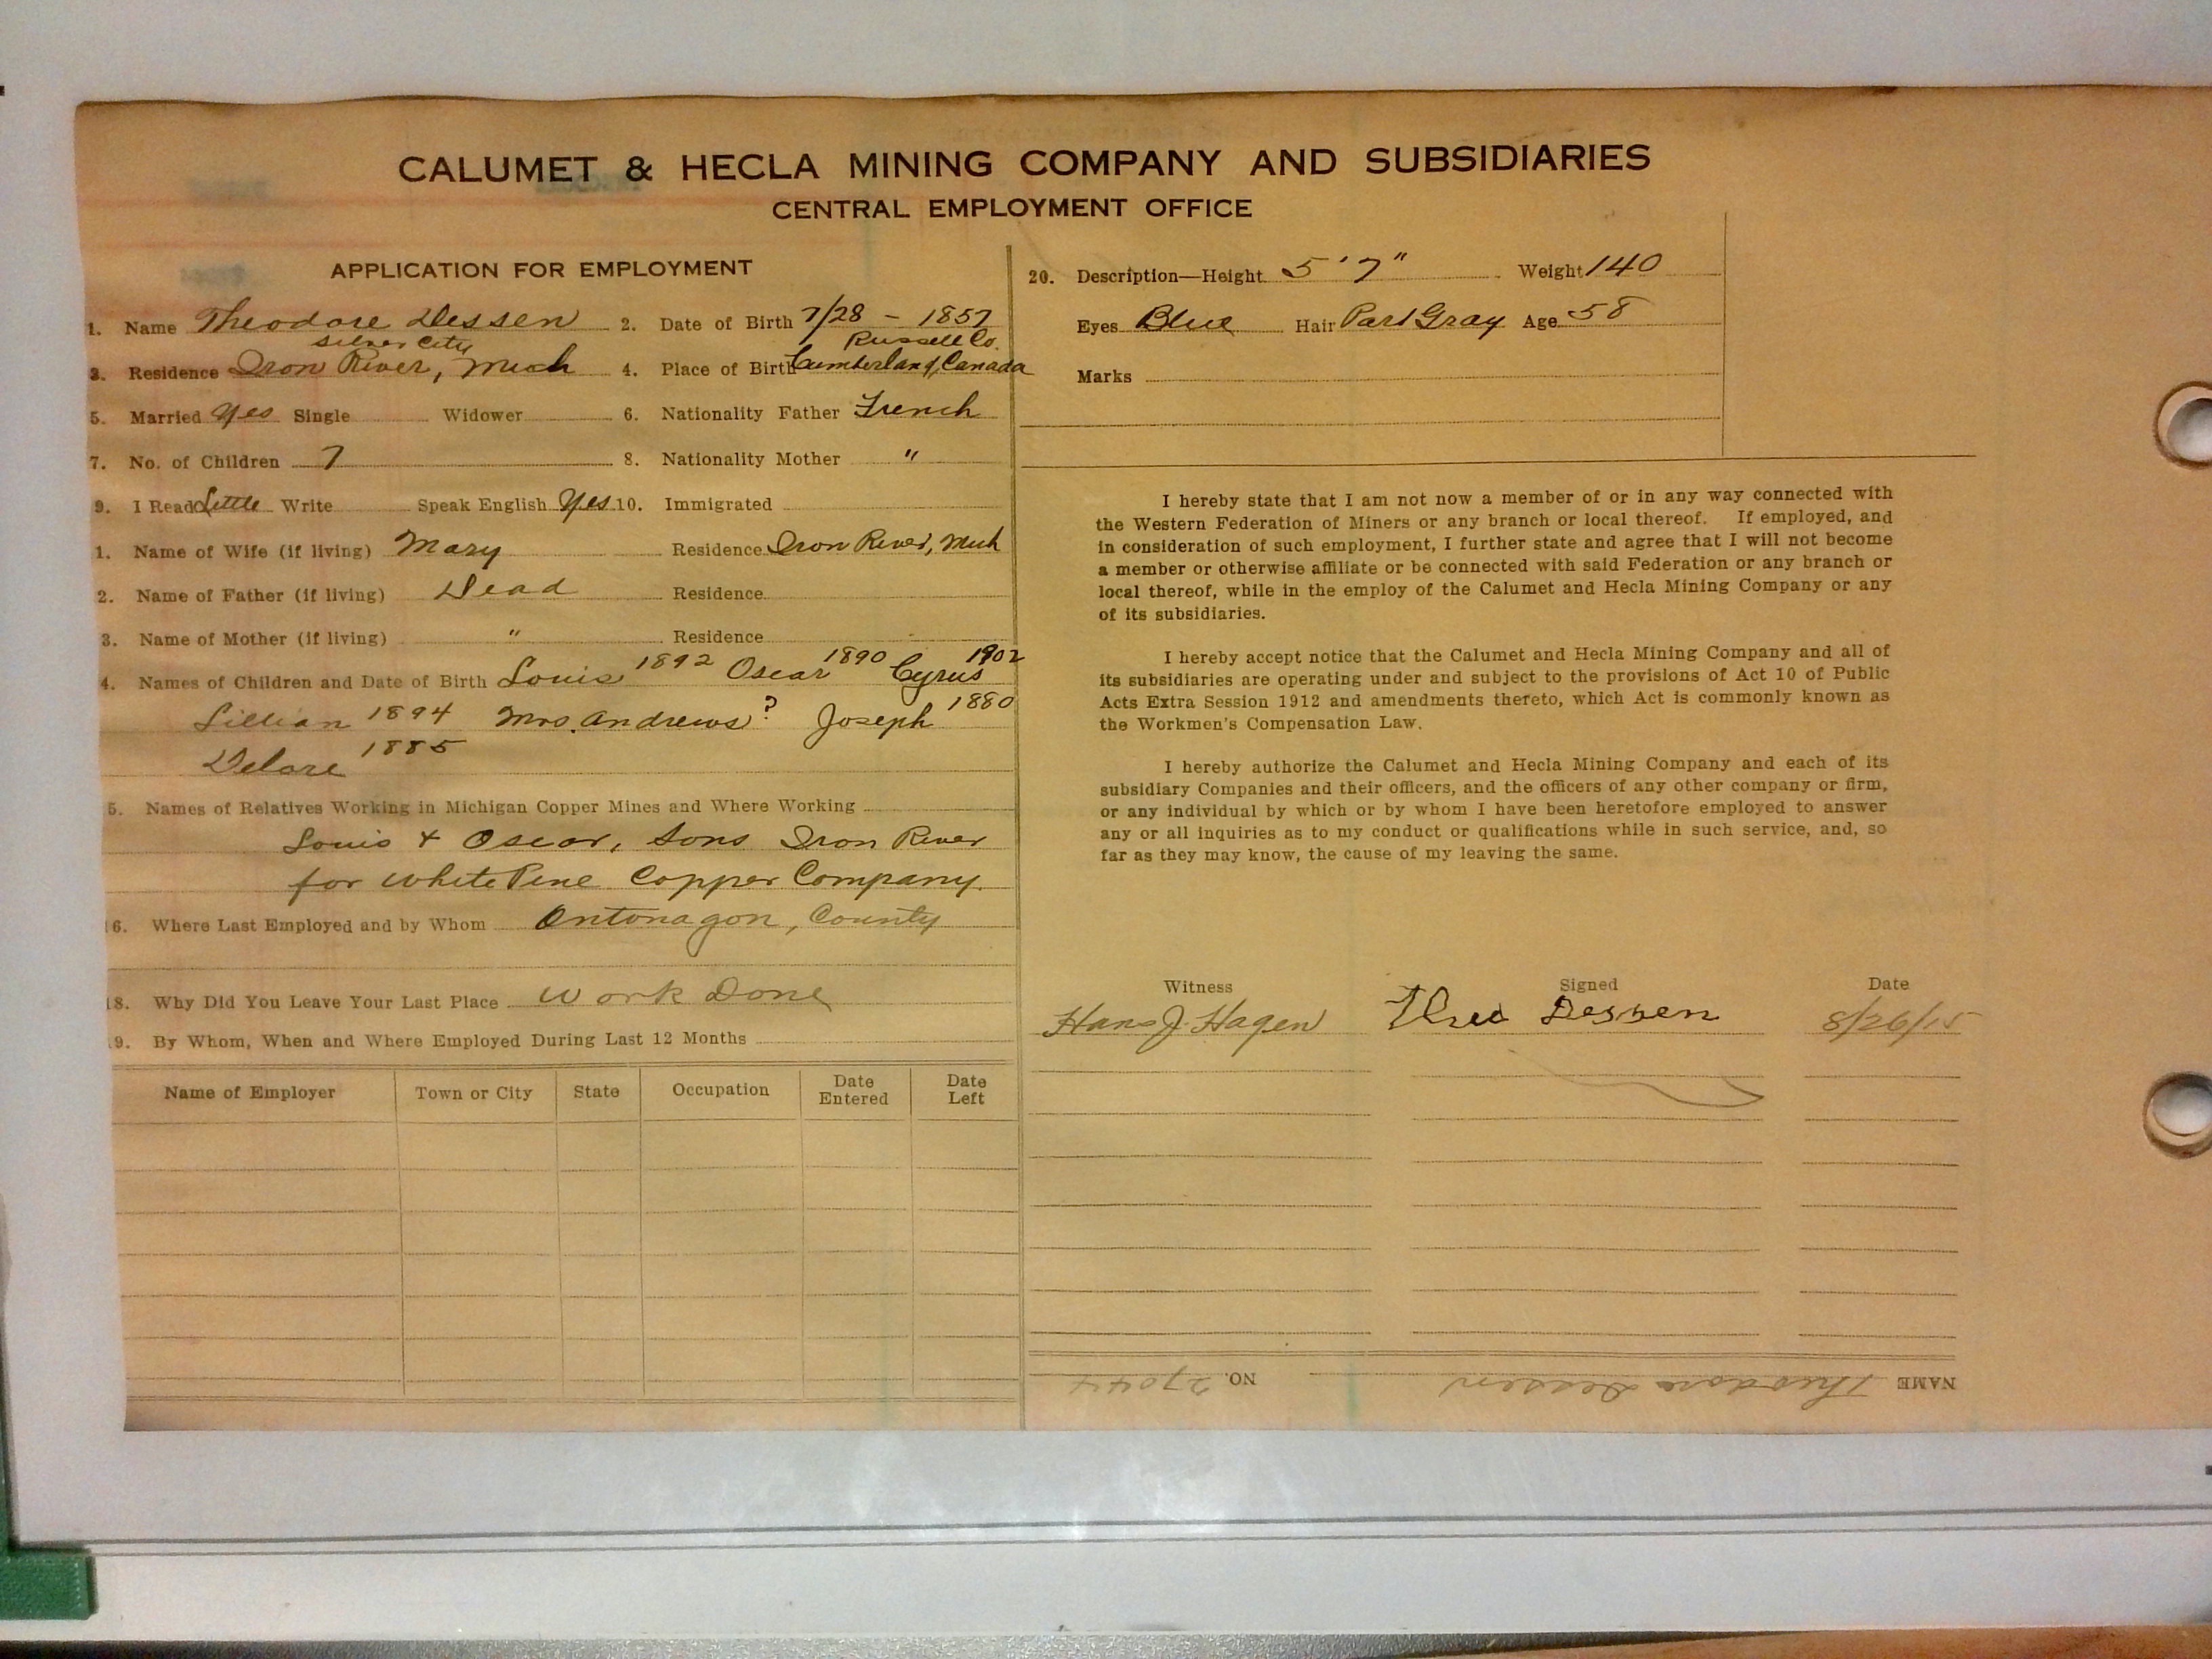 CALUMET & HECLA MINING COMPANY AND SUBSIDIARIES
CENTRAL EMPLOYMENT OFFICE
APPLICATION FOR EMPLOYMENT
1. Name Theodore Dessen 2. Date of Birth 7/28 - 1857
Silver City Russell Co.
3. Residence Iron River, Mich 4. Place of Birth Cumberland, Canada
5. Married Yes Single Widower 6. Nationality Father French
7. No. of Children 7 8. Nationality Mother "
9. I Read Little Write Speak English Yes 10. Immigrated
1. Name of Wife (if living) Mary Residence Iron River, Mich
2. Name of Father (if living) Dead Residence
3. Name of Mother (if living) " Residence
4. Names of Children and Date of Birth Louis 1892 Oscar 1890 Cyrus 1902
Lillian 1894 Mrs. Andrews ? Joseph 1880
Delore 1885
5. Names of Relatives Working in Michigan Copper Mines and Where Working
Louis + Oscar, Sons Iron River
for White Pine Copper Company.
16. Where Last Employed and by Whom Ontonagon, County
18. Why Did You Leave Your Last Place Work Done
9. By Whom, When and Where Employed During Last 12 Months
Name of Employer Town or City State Occupation Date Entered Date Left
20. Description—Height 5' 7" Weight 140
Eyes Blue Hair Part Gray Age 58
Marks
I hereby state that I am not now a member of or in any way connected with
the Western Federation of Miners or any branch or local thereof. If employed, and
in consideration of such employment, I further state and agree that I will not become
a member or otherwise affiliate or be connected with said Federation or any branch or
local thereof, while in the employ of the Calumet and Hecla Mining Company or any
of its subsidiaries.
I hereby accept notice that the Calumet and Hecla Mining Company and all of
its subsidiaries are operating under and subject to the provisions of Act 10 of Public
Acts Extra Session 1912 and amendments thereto, which Act is commonly known as
the Workmen's Compensation Law.
I hereby authorize the Calumet and Hecla Mining Company and each of its
subsidiary Companies and their officers, and the officers of any other company or firm,
or any individual by which or by whom I have been heretofore employed to answer
any or all inquiries as to my conduct or qualifications while in such service, and, so
far as they may know, the cause of my leaving the same.
Witness Signed Date
Hans J. Hagen Theo Dessen 8/26/15
NAME Theodore Dessen NO. 27044